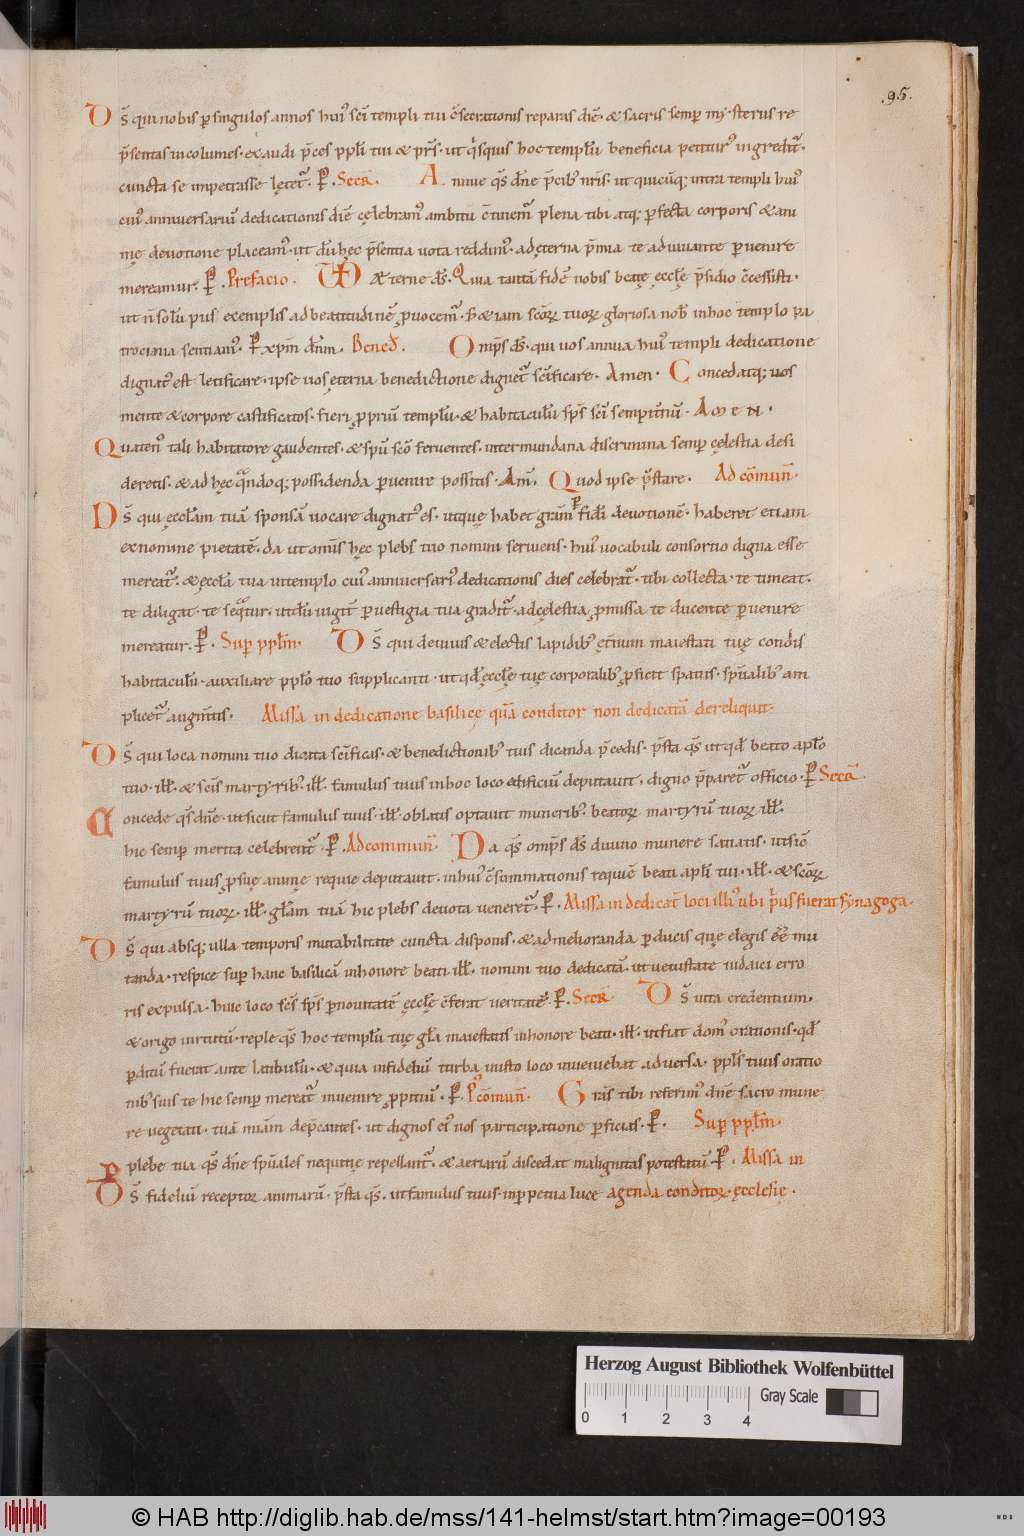 95.
Ds̄ qui nobis ꝑ singulos annos hui᷒ sc̄i templi tui c̄secrationis reparas diē · & sacris semꝑ mysteriis re
p̄sentas incolumes · exaudi p̄ces ppl̄i tui & p̄sta · ut q̇squis hoc templū beneficia petitur᷒ ingredit᷑ ·
cuncta se impetrasse lęcet᷑ · P · Secr̄ · Annue qs̄ dn̄e p̄cib᷒ nr̄is · ut quicūq; intra templi hui᷒
cui᷒ anniversariū dedicationis diē cęlebram᷒ ambitū c̄tinem᷑ plena tibi atq; ꝑfecta corporis & ani
mę devotione placeam᷒ · ut dū hęc p̄sentia vota reddim᷒ · ad ęterna p̄mia te adiuvante ꝑvenire
mereamur · P · Prefacio · VD Æterne ds̄ · Quia tantā fidē nobis beatę ęccl̄ę p̄sidio c̄cessisti ·
ut n̄ solū piis exemplis ad beatitudinē ꝓvocem᷑ · s; & iam sc̄oꝝ tuoꝝ gloriosa nob̄ in hoc templo pa
trocinia sentiam᷒ · P xp̄m dn̄m · Bened̄ · Omp̄s ds̄ · qui vos annua hui᷒ templi dedicatione
dignat᷒ est letificare · ipse vos ęterna benedictione dignet᷑ sc̄ificare · Amen · Concedatq; vos
mente & corpore castificatos · fieri ꝓpriū templū · & habitaculū sp̄s sc̄i sempit̄nū · Amen ·
Quaten᷒ tali habitatore gaudentes · & spū sc̄o ferventes · inter mundana discrimina semꝑ cęlestia desi
deretis · & ad hęc qͣndoq; possidenda ꝑvenire possitis · Am̄ · Quod ipse p̄stare · Ad cōmun̄ ·
Ds̄ qui ęccl̄am tuā sponsā vocare dignat᷒ es · ut quę habet grām ꝑ fidei devotionē · haberet etiam
ex nomine pietatē · da ut omīs hęc plebs tuo nomini serviens · hui᷒ vocabuli consortio digna esse
mereat᷑ · & ęccl̄a tua in templo cui᷒ anniversari᷒ dedicationis dies celebrat᷑ · tibi collecta · te timeat ·
te diligat · te seqͣtur · ut dū iugit̄ ꝑ vestigia tua gradit᷑ · ad cęlestia ꝓmissa te ducente ꝑvenire
mereatur · P · Suꝑ ppl̄m · Ds̄ qui de vivis & electis lapidib᷒ ęt̄num maiestati tuę condis
habitaculū · auxiliare ppl̄o tuo supplicanti · ut qd̄ ęccl̄ę tuę corporalib᷒ ꝓficit spatiis · sp̄ualib᷒ am
plicet᷑ augm̄tis · Missa in dedicatione basilicę quā conditor non dedicatā dereliquit ·
Ds̄ qui loca nomini tuo dicata sc̄ificas · & benedictionib᷒ tuis dicanda p̄cedis · p̄sta qs̄ ut qd̄ beato apl̄o
tuo · ill̄ · & sc̄is martyrib᷒ · ill̄ · famulus tuus in hoc loco edificiū deputavit · digno p̄paret᷑ officio · P Secr̄a ·
Concede qs̄ dn̄e · ut sicut famulus tuus · ill̄ · oblatis optavit munerib᷒ · beatoꝝ martyrū tuoꝝ ill̄ ·
hic semꝑ merita celebrent᷑ · P · Ad commun̄ · Da qs̄ omp̄s ds̄ divino munere satiatis · ut sic
famulus tuus ꝓ suę animę requie deputavit · in hui᷒ c̄summationis requiē beati apl̄i tui · ill̄ · & sc̄oꝝ
martyrū tuoꝝ · ill̄ · gl̄am tuā hic plebs devota veneret᷑ · P · Missa in dedicat̄ loci illi᷒ ubi p̄us fuerat synagoga ·
Ds̄ qui absq; ulla temporis mutabilitate cuncta disponis · & ad melioranda ꝑducis quę elegis ēē mu
tanda · respice suꝑ hanc basilicā in honore beati ill̄ · nomini tuo dedicatā · ut vetustate iudaici erro
ris expulsa · huic loco sc̄s sp̄s ꝑ novitatē ęccl̄ę c̄ferat veritatē · P · Secr̄a Ds̄ vita credentium ·
& origo virtutū · reple qs̄ hoc templū tuę gl̄a maiestatis in honore beati · ill̄ · ut fiat dom᷒ orationis · qd̄
ꝑditū fuerat ante latibulū · & quia infideliū turba in isto loco inveniebat adversa · ppl̄s tuus oratio
nib᷒ suis te hic semꝑ mereat᷑ invenire ꝓpitiū · P · Pꝰ cōmun̄ · Grās tibi referim᷒ dn̄e sacro mune
re vegetati · tuā mīam dep̄cantes · ut dignos ei᷒ nos participatione ꝑficias · P · Suꝑ ppl̄m ·
A plebe tua qs̄ dn̄e sp̄uales nequitię repellant᷑ · & aeriarū discedat malignitas potestatū · P · Missa in
Ds̄ fideliū receptor animarū · p̄sta qs̄ · ut famulus tuus · in ꝑpetua luce agenda conditoꝝ · ęcclesię ·
Herzog August Bibliothek Wolfenbüttel
Gray Scale
0 1 2 3 4
© HAB http://diglib.hab.de/mss/141-helmst/start.htm?image=00193